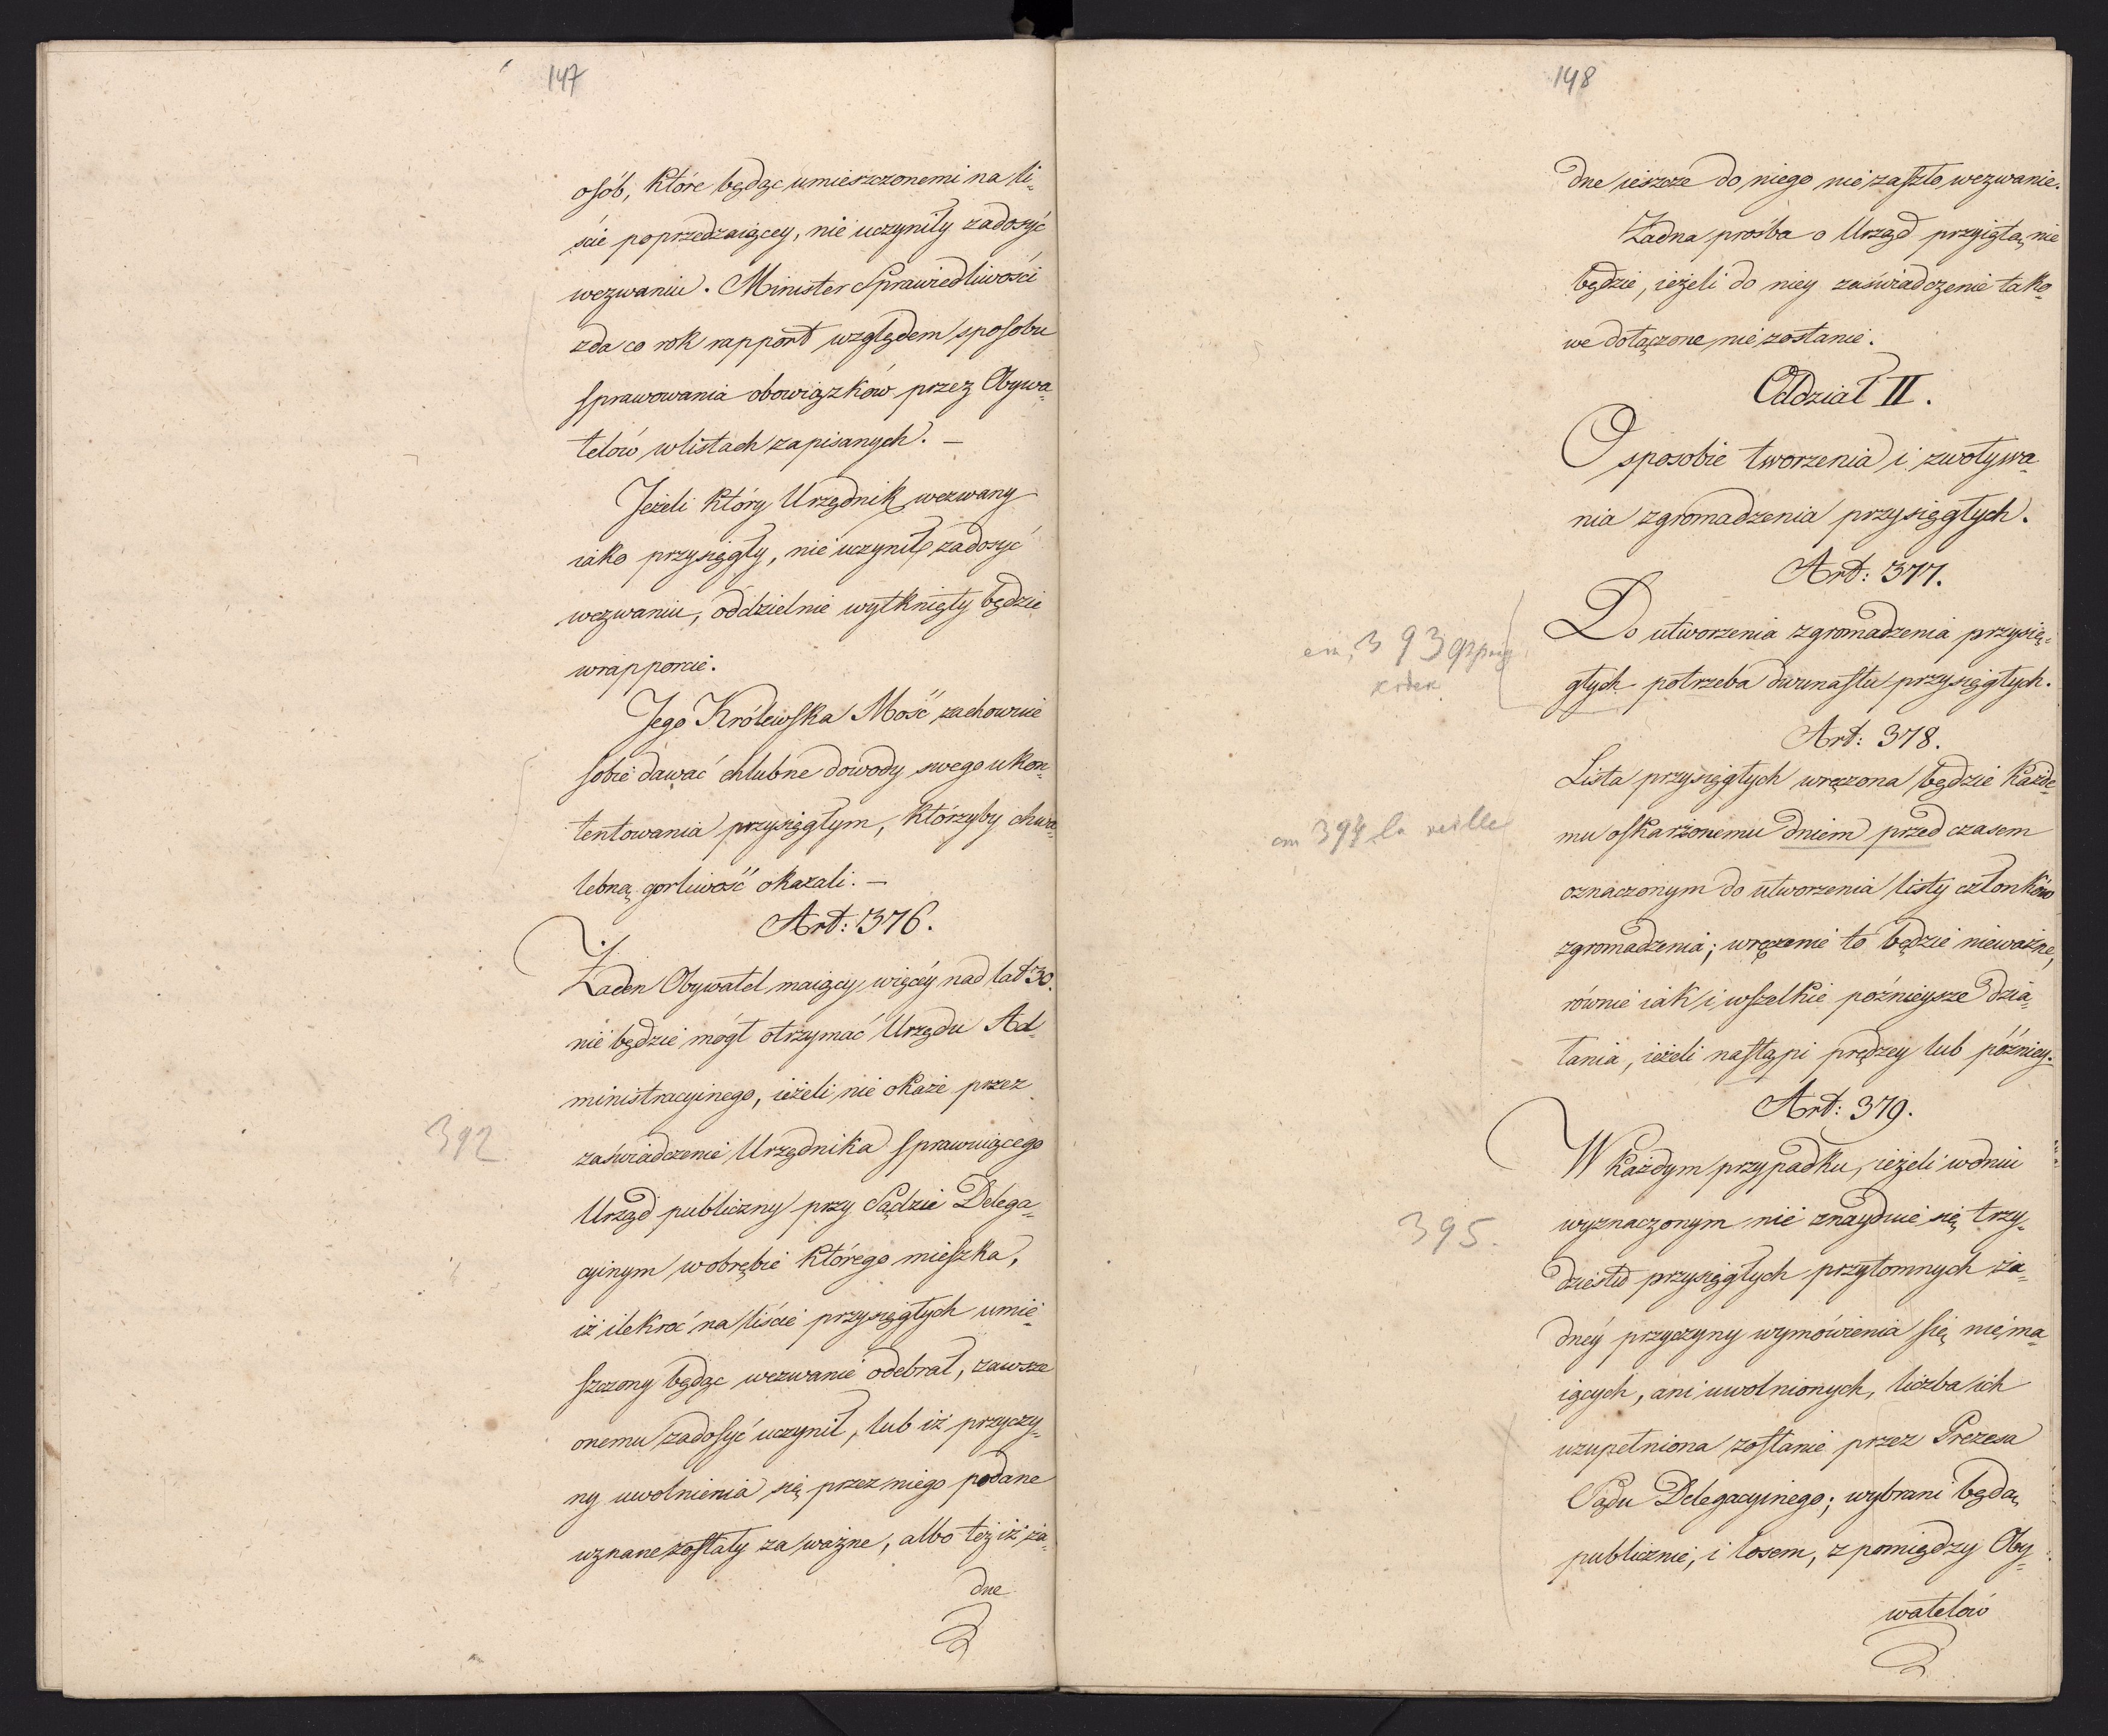 147
osób, które będąc umieszczonemi na li-
ście poprzedzaiącey, nie uczyniły zadosyć
wezwaniu. Minister Sprawiedliwości
zda co rok rapport względem sposobu
sprawowania obowiązków przez Obywa-
telów w listach zapisanych. —
Jeżeli który Urzędnik wezwany
iako przysięgły, nie uczynił zadosyć
wezwaniu, oddzielnie wytknięty będzie
w rapporcie.
Jego Królewska Mość zachowuie
sobie dawać chlubne dowody swego ukon-
tentowania przysięgłym, którzyby chwa-
lebną gorliwość okazali. —
Art: 376.
Żaden Obywatel maiący więcéy nad lat 30.
nie będzie mógł otrzymać Urzędu Ad-
ministracyinego, ieżeli nie okaże przez
392
zaświadczenie Urzędnika sprawuiącego
Urząd publiczny przy Sądzie Delega-
cyinym w obrębie którego mieszka,
iż ilekroć na liście przysięgłych umie-
szczony będąc wezwanie odebrał, zawsze
onemu zadosyć uczynił, lub iż przyczy-
ny uwolnienia się przez niego podane
uznane zostały za ważne, albo też iż ża-
dne
148
dne ieszcze do niego nie zaszło wezwanie.
Żadna prośba o Urząd przyiętą nie
będzie, ieżeli do niey zaświadczenie tako-
we dołączone nie zostanie.
Oddział II.
O sposobie tworzenia i zwoływa-
nia zgromadzenia przysięgłych.
Art: 377.
Do utworzenia zgromadzenia przysię-
393
głych potrzeba dwunastu przysięgłych.
Art: 378.
Lista przysięgłych wręczona będzie każde-
394 la veille
mu oskarżonemu dniem przed czasem
oznaczonym do utworzenia listy członków
zgromadzenia; wręczenie to będzie nieważne,
równie iak i wszelkie poźnieysze dzia-
łania, ieżeli nastąpi prędzey lub późniey.
Art: 379.
W każdym przypadku, ieżeli w dniu
395.
wyznaczonym nie znayduie się trzy-
dziestu przysięgłych przytomnych ża-
dnéy przyczyny wymówienia się nie ma-
iących, ani uwolnionych, liczba ich
uzupełniona zostanie przez Prezesa
Sądu Delegacyinego; wybrani będą
publicznie, i losem, z pomiędzy Oby-
watelów